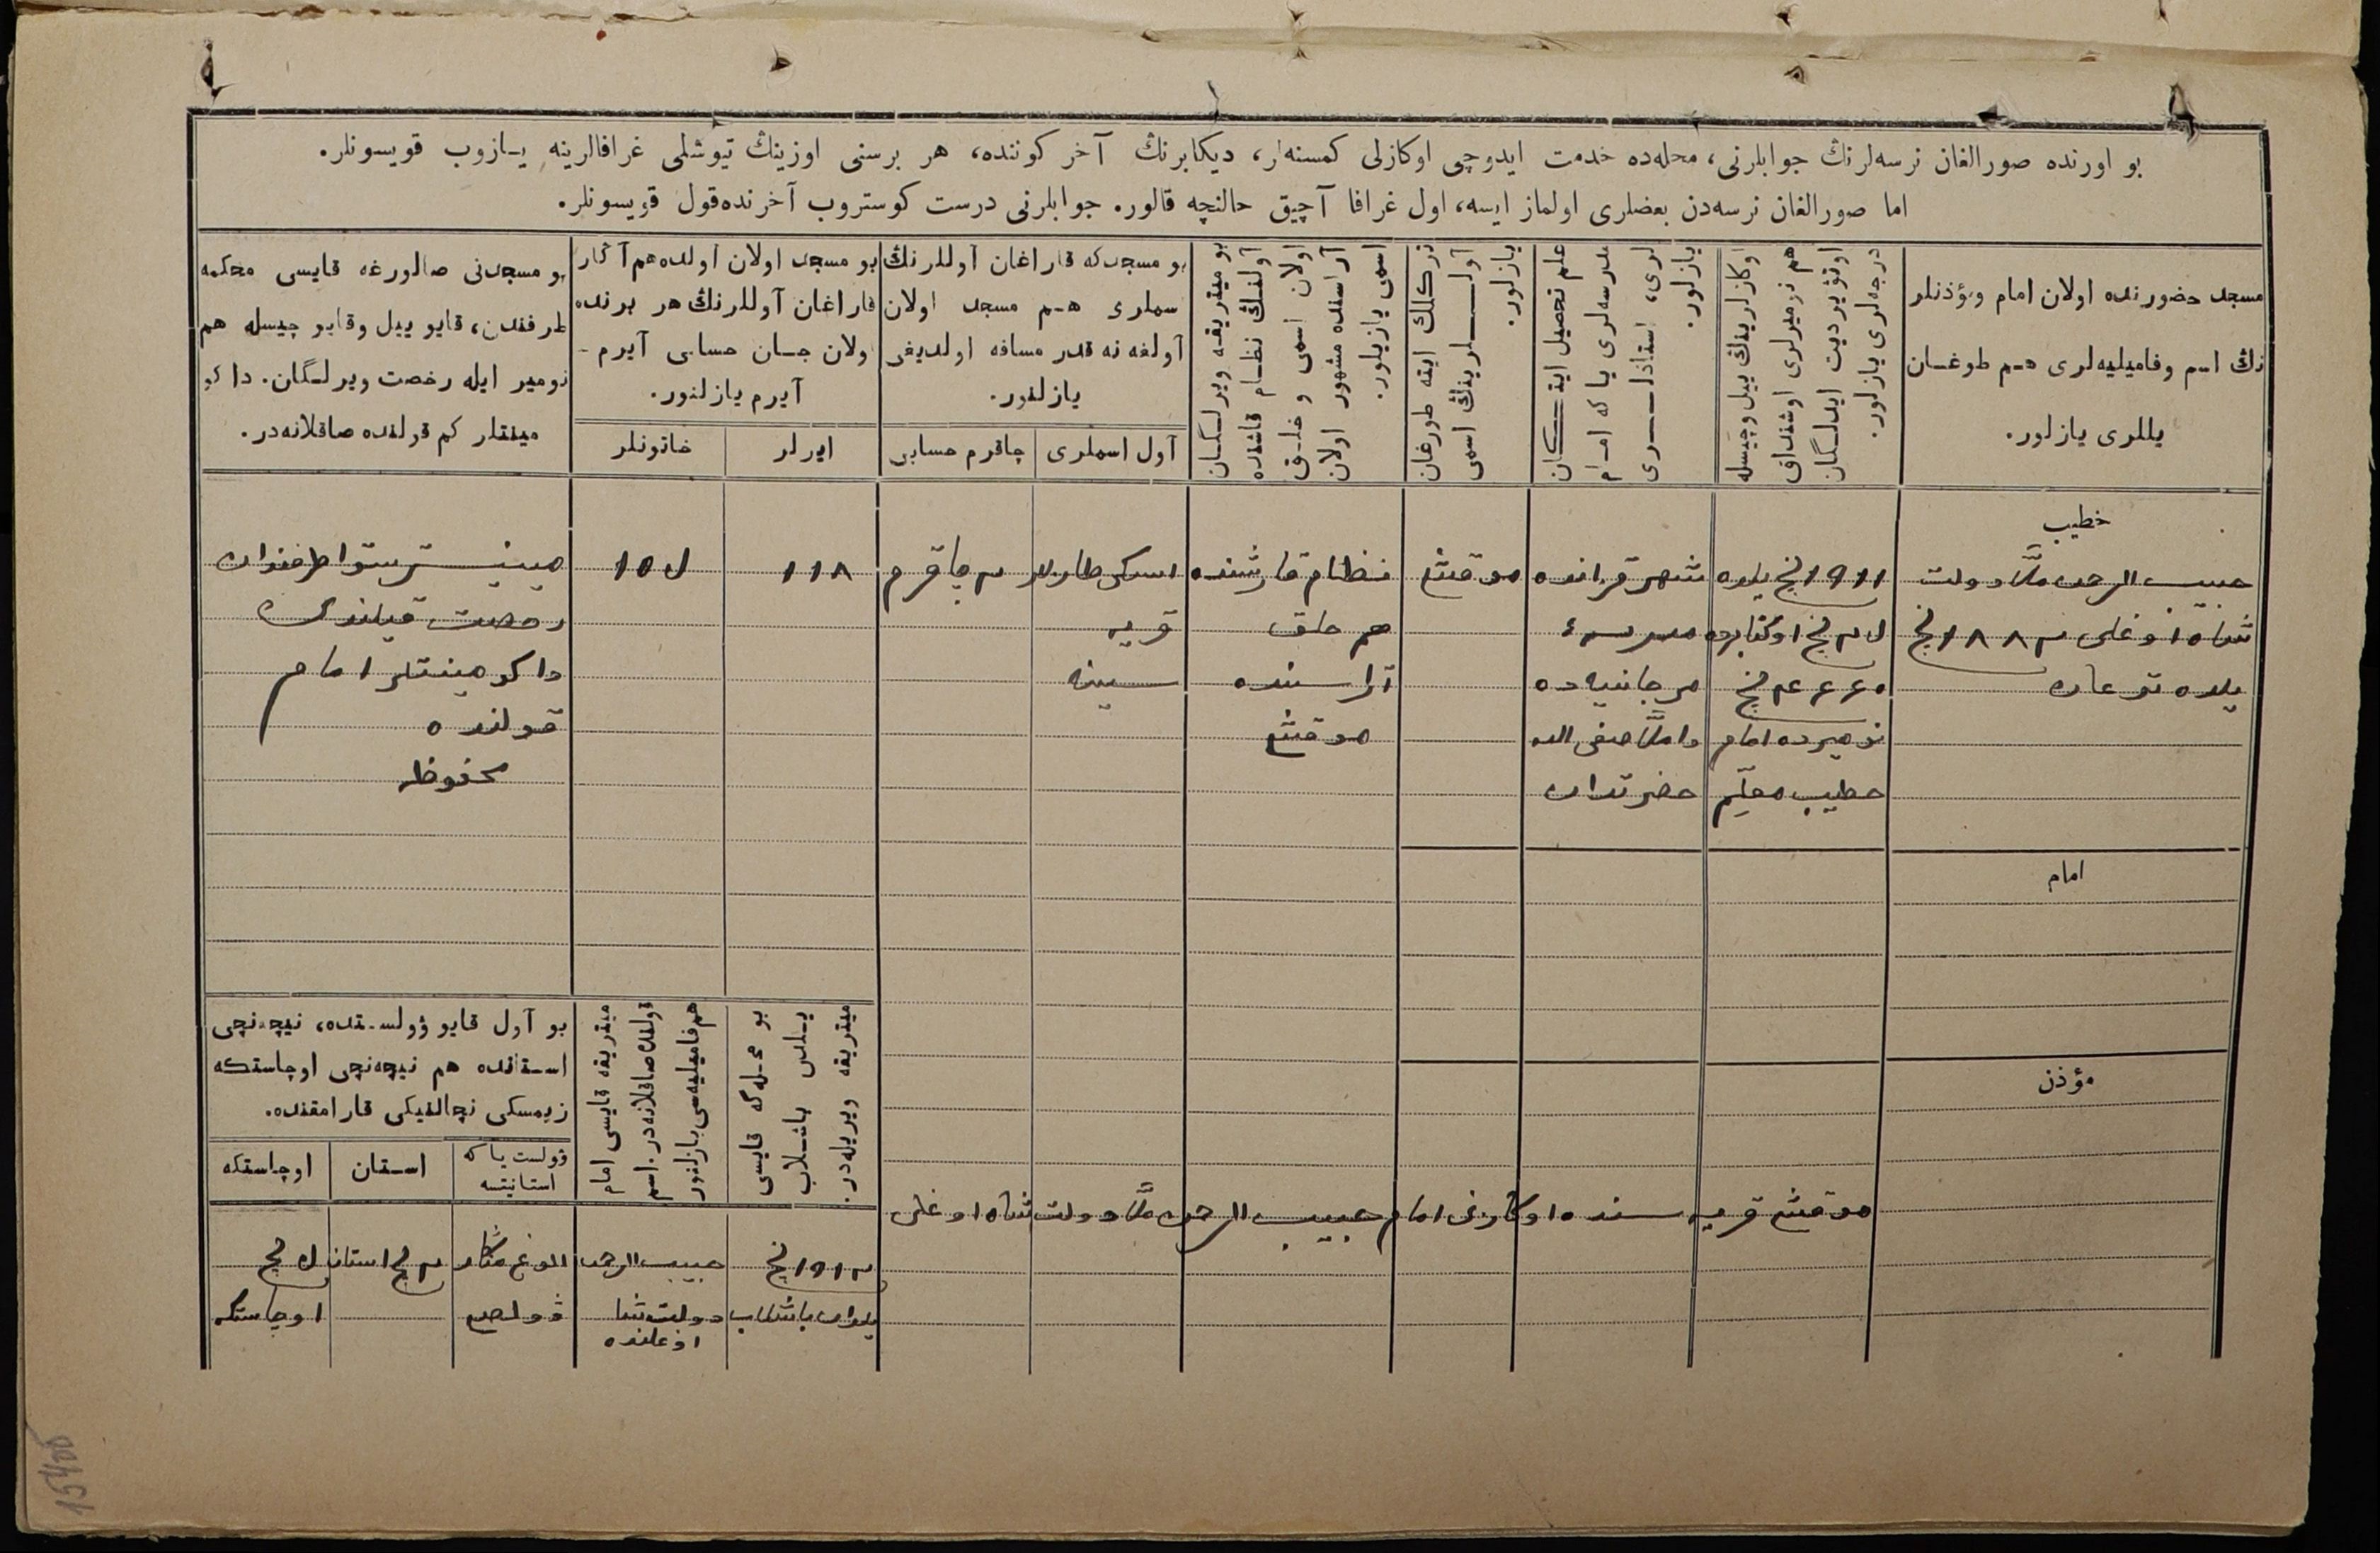 بو اورنده صورالغان نرسه‌لرنڭ جوابلرنی، محله‌ده خدمت ایدوچی اوكازلی كمسنه‌لر، دیكابرنڭ آخر كوننده، هر برسنی اوزینڭ تیوشلی غرافالرینه یازوب قویسونلر.
اما صورالغان نرسه‌دن بعضلری اولماز ایسه، اول غرافا آچیق حالنچه قالور. جوابلرنی درست كوستروب آخرنده قول قویسونلر.
مسجد حضورنده اولان امام ومؤذنلر
نڭ اسم وفامیلیه‌لری هم طوغان
یللری یازلور.
اوكازلرینڭ ییل وچیسله
هم نومیرلری اوشنداق
اوتۋیردیت ایدلگان
درجه‌لری یازلور.
علم تحصیل ایتكان
مدرسه‌لری یا كه امام
لری، استاذلری
یازلور.
نرككلك ایته طورغان
آوللرینڭ اسمی
یازلور.
بو میتریقه ویرلگان
آولنڭ نظام قاشنده
اولان اسمی و خلق
آراسنده مشهور اولان
اسمی یازیلور.
بو مسجدكه قاراغان آوللرنڭ
سملری هم مسجد اولان
آولغه نه قدر مسافه اولدیغی
یازلنور.
آول اسملری
چاقرم حسابی
بو مسجد اولان اولده هم آڭار
قاراغان آوللرنڭ هر برنده
ولان جان حسابی آیرم-
آیرم یازلنور.
ایرلر
خاتونلر
بو مسجدنی صالورغه قایسی محكمه
طرفندن، قایو ییل وقایو چیسله هم
نومیر ایله رخصت ویرلگان. داكو
مینتلر كم قولنده صاقلانه‌در.
خطیب
حبیب الرحمن ملّا دولت
شاه اوغلی ١٨٨٢ نچی
یلده توغان
١٩١١ نچی یلده
نومیرده امام
خطیب معلّم
شهر قزانده
مدرسهٔ
مرجانیه‌ده
داملّا صفی الله
حضرتدان
موقشی
نظام قارشنده
هم خلق
آراسنده
موقشی
اسكی
قریه
سینه
٢ چاقرم
١١٨
١٥٥
مینیسترستوا طرفندان
رخصت قیلندی
داكومینتلر امام
قولنده
محفوظ
امام
مؤذن
بو آول قایو وولستده، نیچه‌نچی
استانده هم نیچه‌نچی اوچاستكه
زیمسكی نچالنیكی قارامقنده.
وولست یا كه
استانیتسه
استان
اوچاستكه
میتریقه قایسی امام
قولنده صاقلانه‌در. اسم
هم فامیلیه‌سی یازلنور
بو محله‌گه قایسی
یلدن باشلاب
میتریقه ویریله‌در.
موقشی قریه سنده اوكازنی امام حبیب الرحمن ملّا دولت شاه اوغلی
١٩١٢ نچی
یلدان باشلاب
حبیب الرحمن
دولت شا
اوغلنده
وولوصی
٢ نچی استان
٥ نچی
اوچاستكه
15400